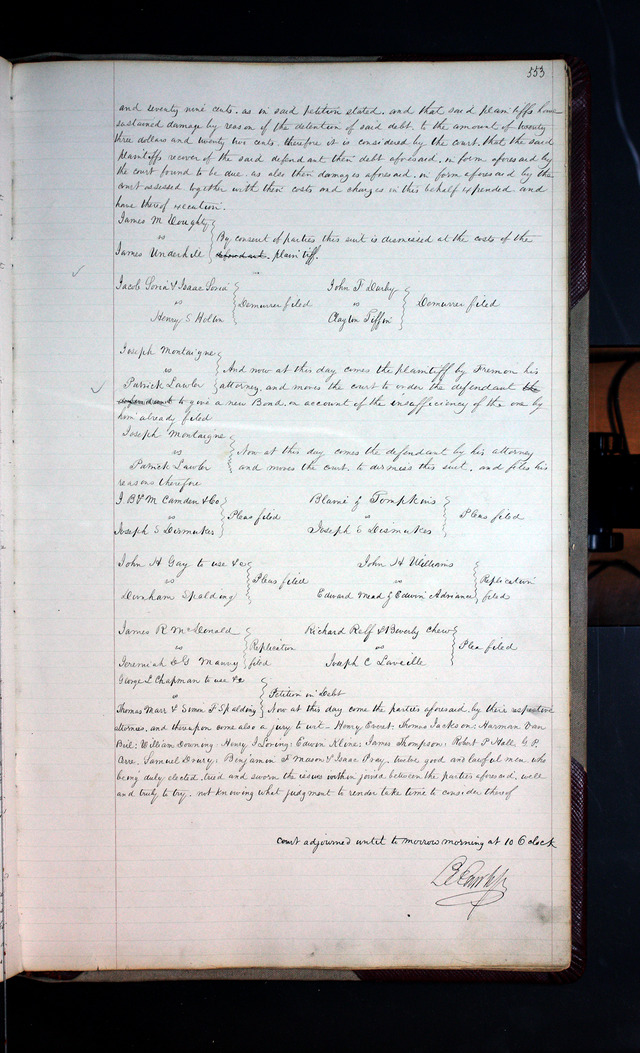 553
and seventy nine cents. as in said petition stated. and that said plaintiffs have
sustained damage by reason of the detention of said debt. to the amount of twenty
three dollars and twenty two cents. therefore it is considered by the court. that the said
plaintiffs recover of the said defendant their debt aforesaid. in form aforesaid by
the court found to be due. as also their damages aforesaid. in form aforesaid by the
court assessed together with their costs and charges in this behalf expended. and
have thereof execution.
James M Doughty
vs
James Underhile
By consent of parties this suit is dismissed at the costs of the
defendant. plaintiff.
Jacob Soria & Isaac Soria
vs
Henry S Holton
Demurrer filed
John F Darby
vs
Clayton Tiffin
Demurrer filed
Joseph Montaigne
vs
Patrick Lawler
And now at this day comes the plaintiff by his
attorney, and moves the court to order the defendant the
defendant to give a new Bond, on account of the insufficiency of the one by
him already filed
Joseph Montaigne
vs
Patrick Lawler
Now at this day comes the defendant by his attorney
and moves the court. to dismiss this suit. and files his
reasons therefore
J. B & M Camden & Co
vs
Joseph S Dismukes
Pleas filed
Blaine & Tompkins
vs
Joseph S Dismukes
Pleas filed
John H Gay to use &c
vs
Durnham Spalding
Pleas filed
John H Williams
vs
Edward Mead & Edwin Adriance
Replication
filed
James R McDonald
vs
Jeremiah & G Manny
Replication
filed
Richard Relf & Beverly Chew
vs
Joseph C Laveille
Plea filed
George L Chapman to use &c
vs
Thomas Marr & F Spalding
Petition in Debt
Now at this day come the parties aforesaid, by their respective
attornies, and thereupon come also a jury to wit - Henry Everet: Thomas Jackson: Harman Van
Biel: William Downing: Henry J Loring: Edwin Kline: James Thompson: Robert P Hall, G P.
Orre. Samuel Drury: Benjamin F Mason & Isaac Pray. twelve good and lawful men. who
being duly elected, tried and sworn the issues within joined between the parties aforesaid, well
and truly to try. not knowing what judgment to render take time to consider thereof
Court adjourned until to morrow morning at 10 O clock